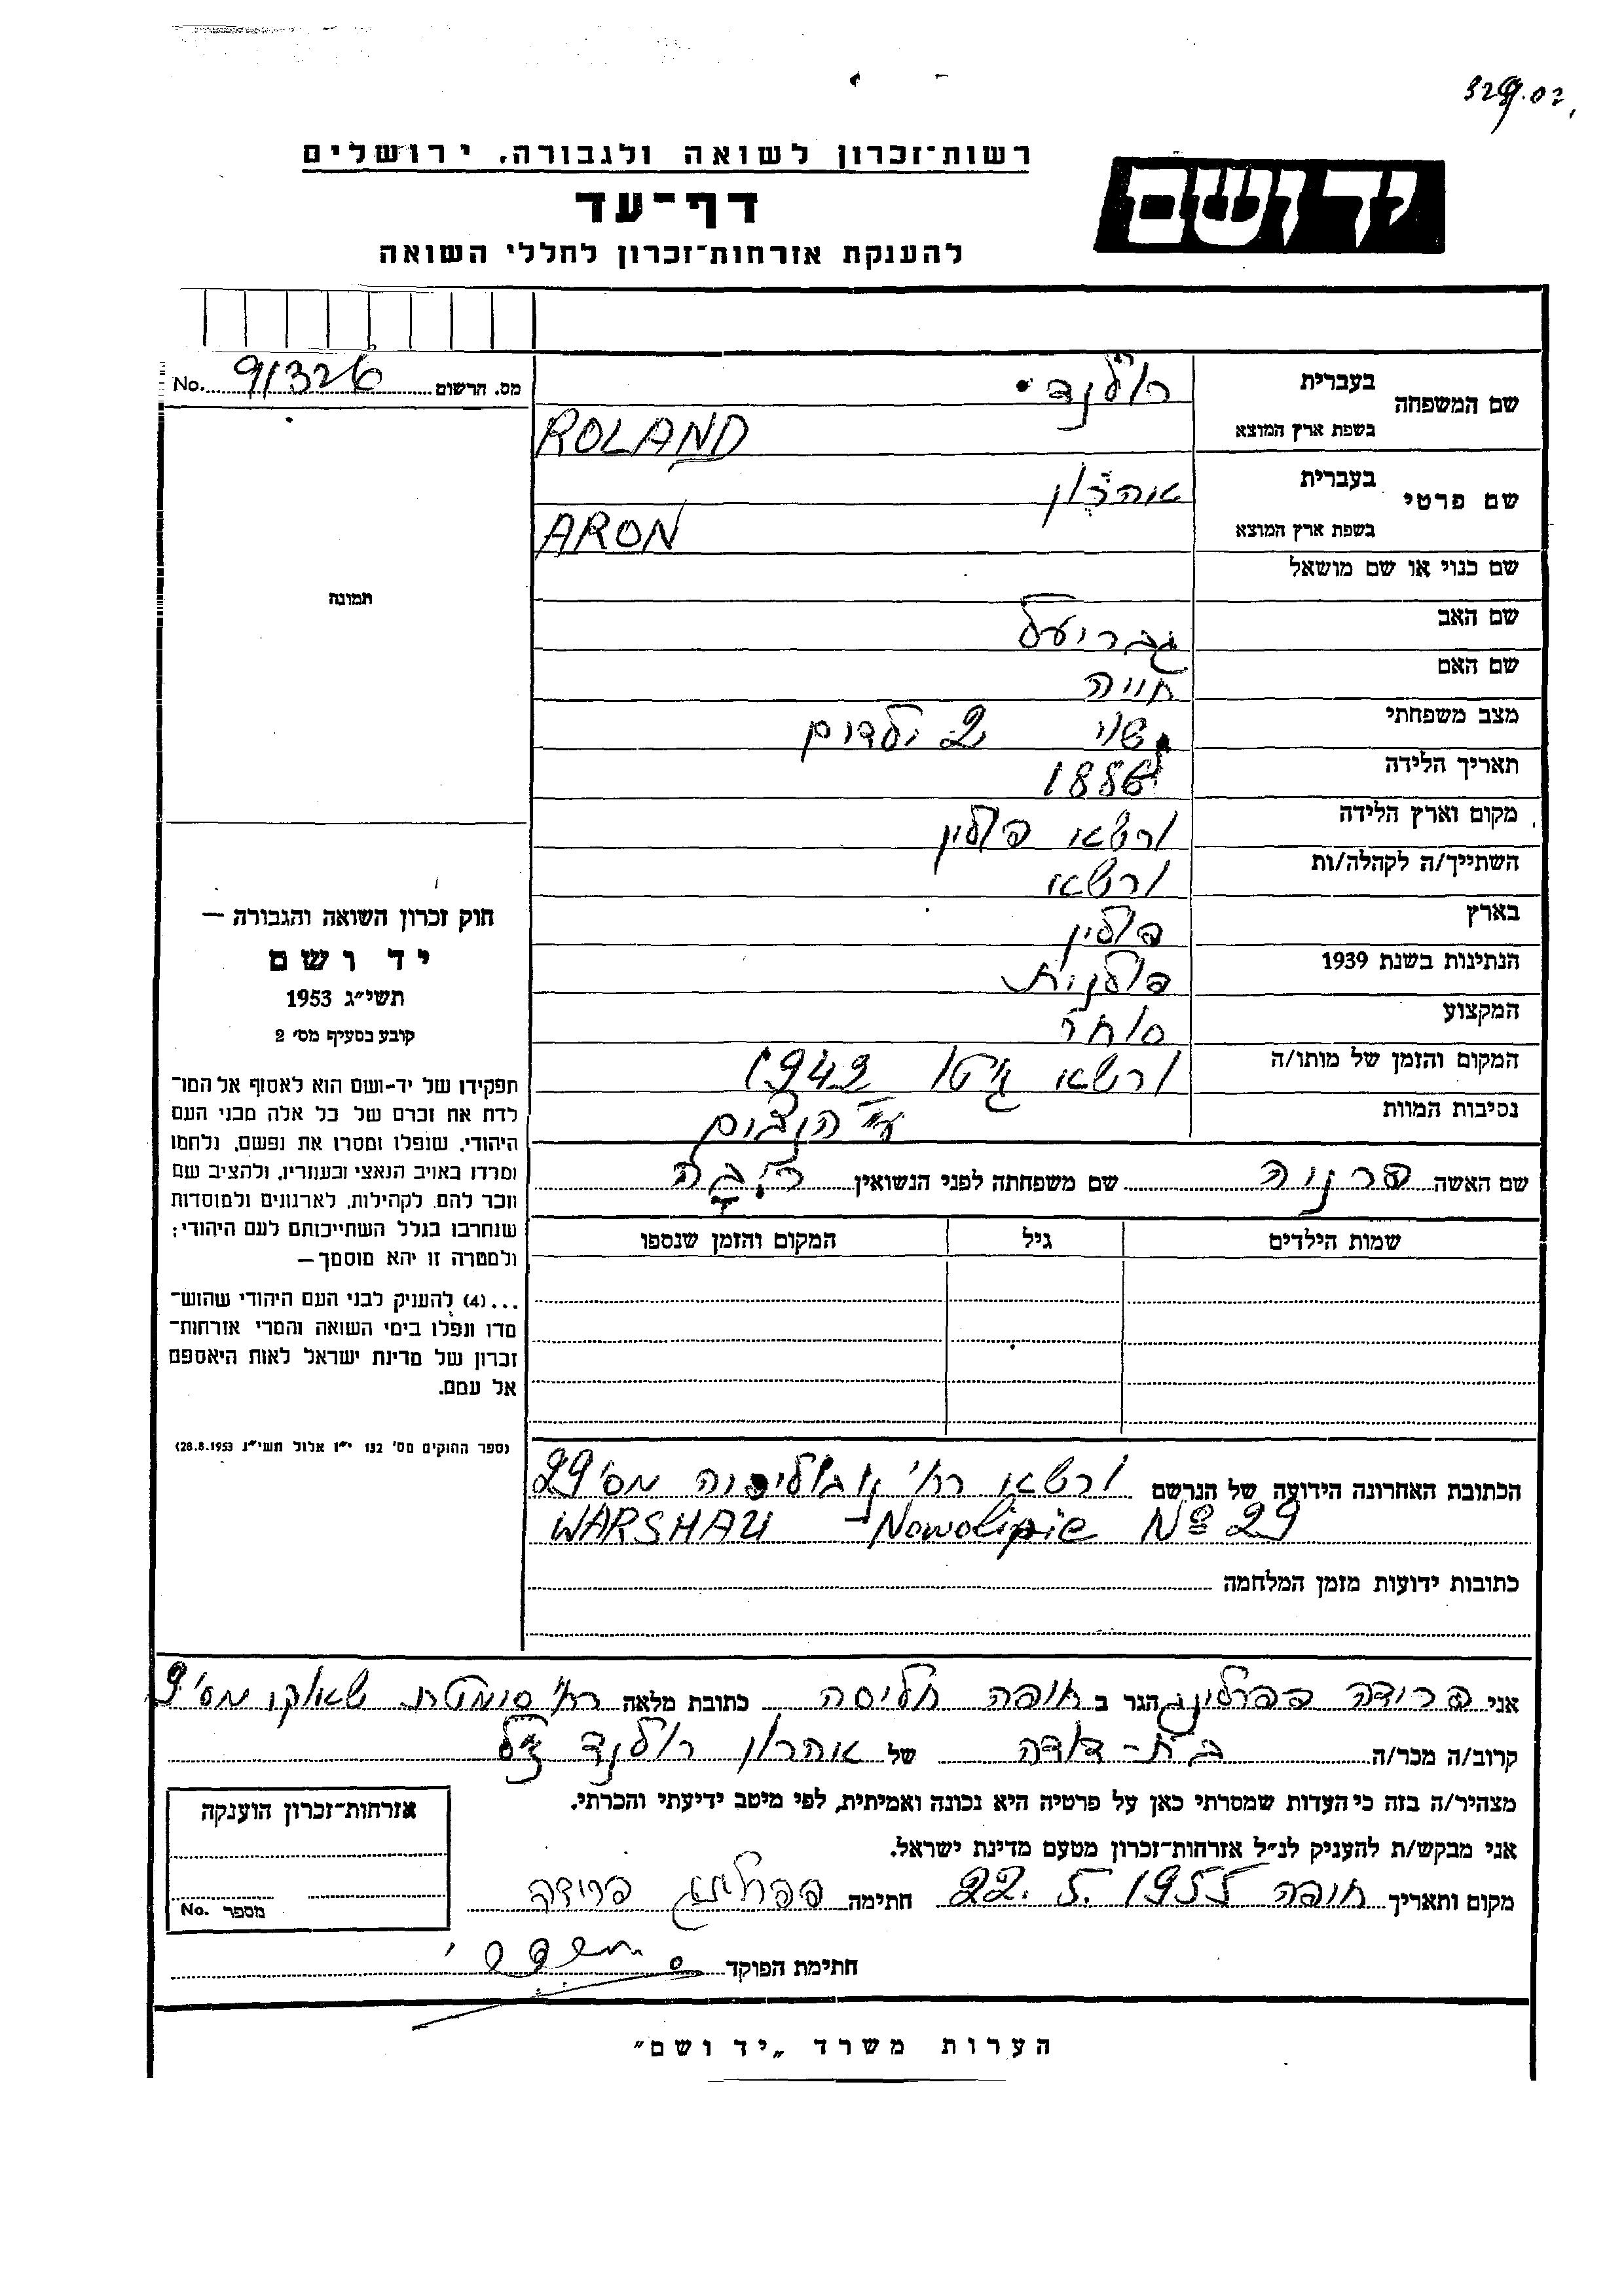 רשות-זכרון לשואה ולגבורה, ירושלים
יד ושם
דף-עד
להענקת אזרחות-זכרון לחללי השואה
מס. הרשום 91326 No.
שם המשפחה בעברית רולנד
בשפת ארץ המוצא ROLAND
שם פרטי בעברית אהרון
בשפת ארץ המוצא ARON
שם כנוי או שם מושאל
שם האב גבריעל
שם האם חייה
מצב משפחתי נשוי 2 ילדים
תאריך הלידה 1886
מקום וארץ הלידה ורשאו פולין
השתייך/ה לקהלה/ות ורשאו
בארץ פולין
הנתינות בשנת 1939 פולנית
המקצוע סוחר
המקום והזמן של מותו/ה ורשאו גיטו 1942
נסיבות המוות ע"י הנצים
שם האשה שם משפחתה לפני הנשואין
שמות הילדים גיל המקום והזמן שנספו
תמונה
חוק זכרון השואה והגבורה —
יד ושם
תשי"ג 1953
קובע בסעיף מס' 2
תפקידו של יד-ושם הוא לאסוף אל המו־
לדת את זכרם של כל אלה מבני העם
היהודי, שנפלו ומסרו את נפשם, נלחמו
ומרדו באויב הנאצי ובעוזריו, ולהציב שם
וזכר להם, לקהילות, לארגונים ולמוסדות
שנחרבו בגלל השתייכותם לעם היהודי;
ולמטרה זו יהא מוסמך—
...(4) להעניק לבני העם היהודי שהוש־
מדו ונפלו בימי השואה והמרי אזרחות־
זכרון של מדינת ישראל לאות היאספם
אל עמם.
(ספר החוקים מס' 132 י"ז אלול תשי"ג 28.8.1953)
הכתובת האחרונה הידועה של הנרשם ורשאו רח' נובוליפיה מס' 29
WARSHAU - Nowolipie № 29
כתובות ידועות מזמן המלחמה
אני פרידה פפרלינג הגר ב חיפה חליסה כתובת מלאה רח' מס' 9
קרוב/ה מכר/ה בת-דודה של אהרון רולנד ז"ל
מצהיר/ה בזה כי העדות שמסרתי כאן על פרטיה היא נכונה ואמיתית, לפי מיטב ידיעתי והכרתי.
אני מבקש/ת להעניק לנ"ל אזרחות-זכרון מטעם מדינת ישראל.
מקום ותאריך חיפה 22. 5. 1955 חתימה פפרלינג פרידה
חתימת הפוקד
אזרחות-זכרון הוענקה
מספר No.
הערות משרד „יד ושם"